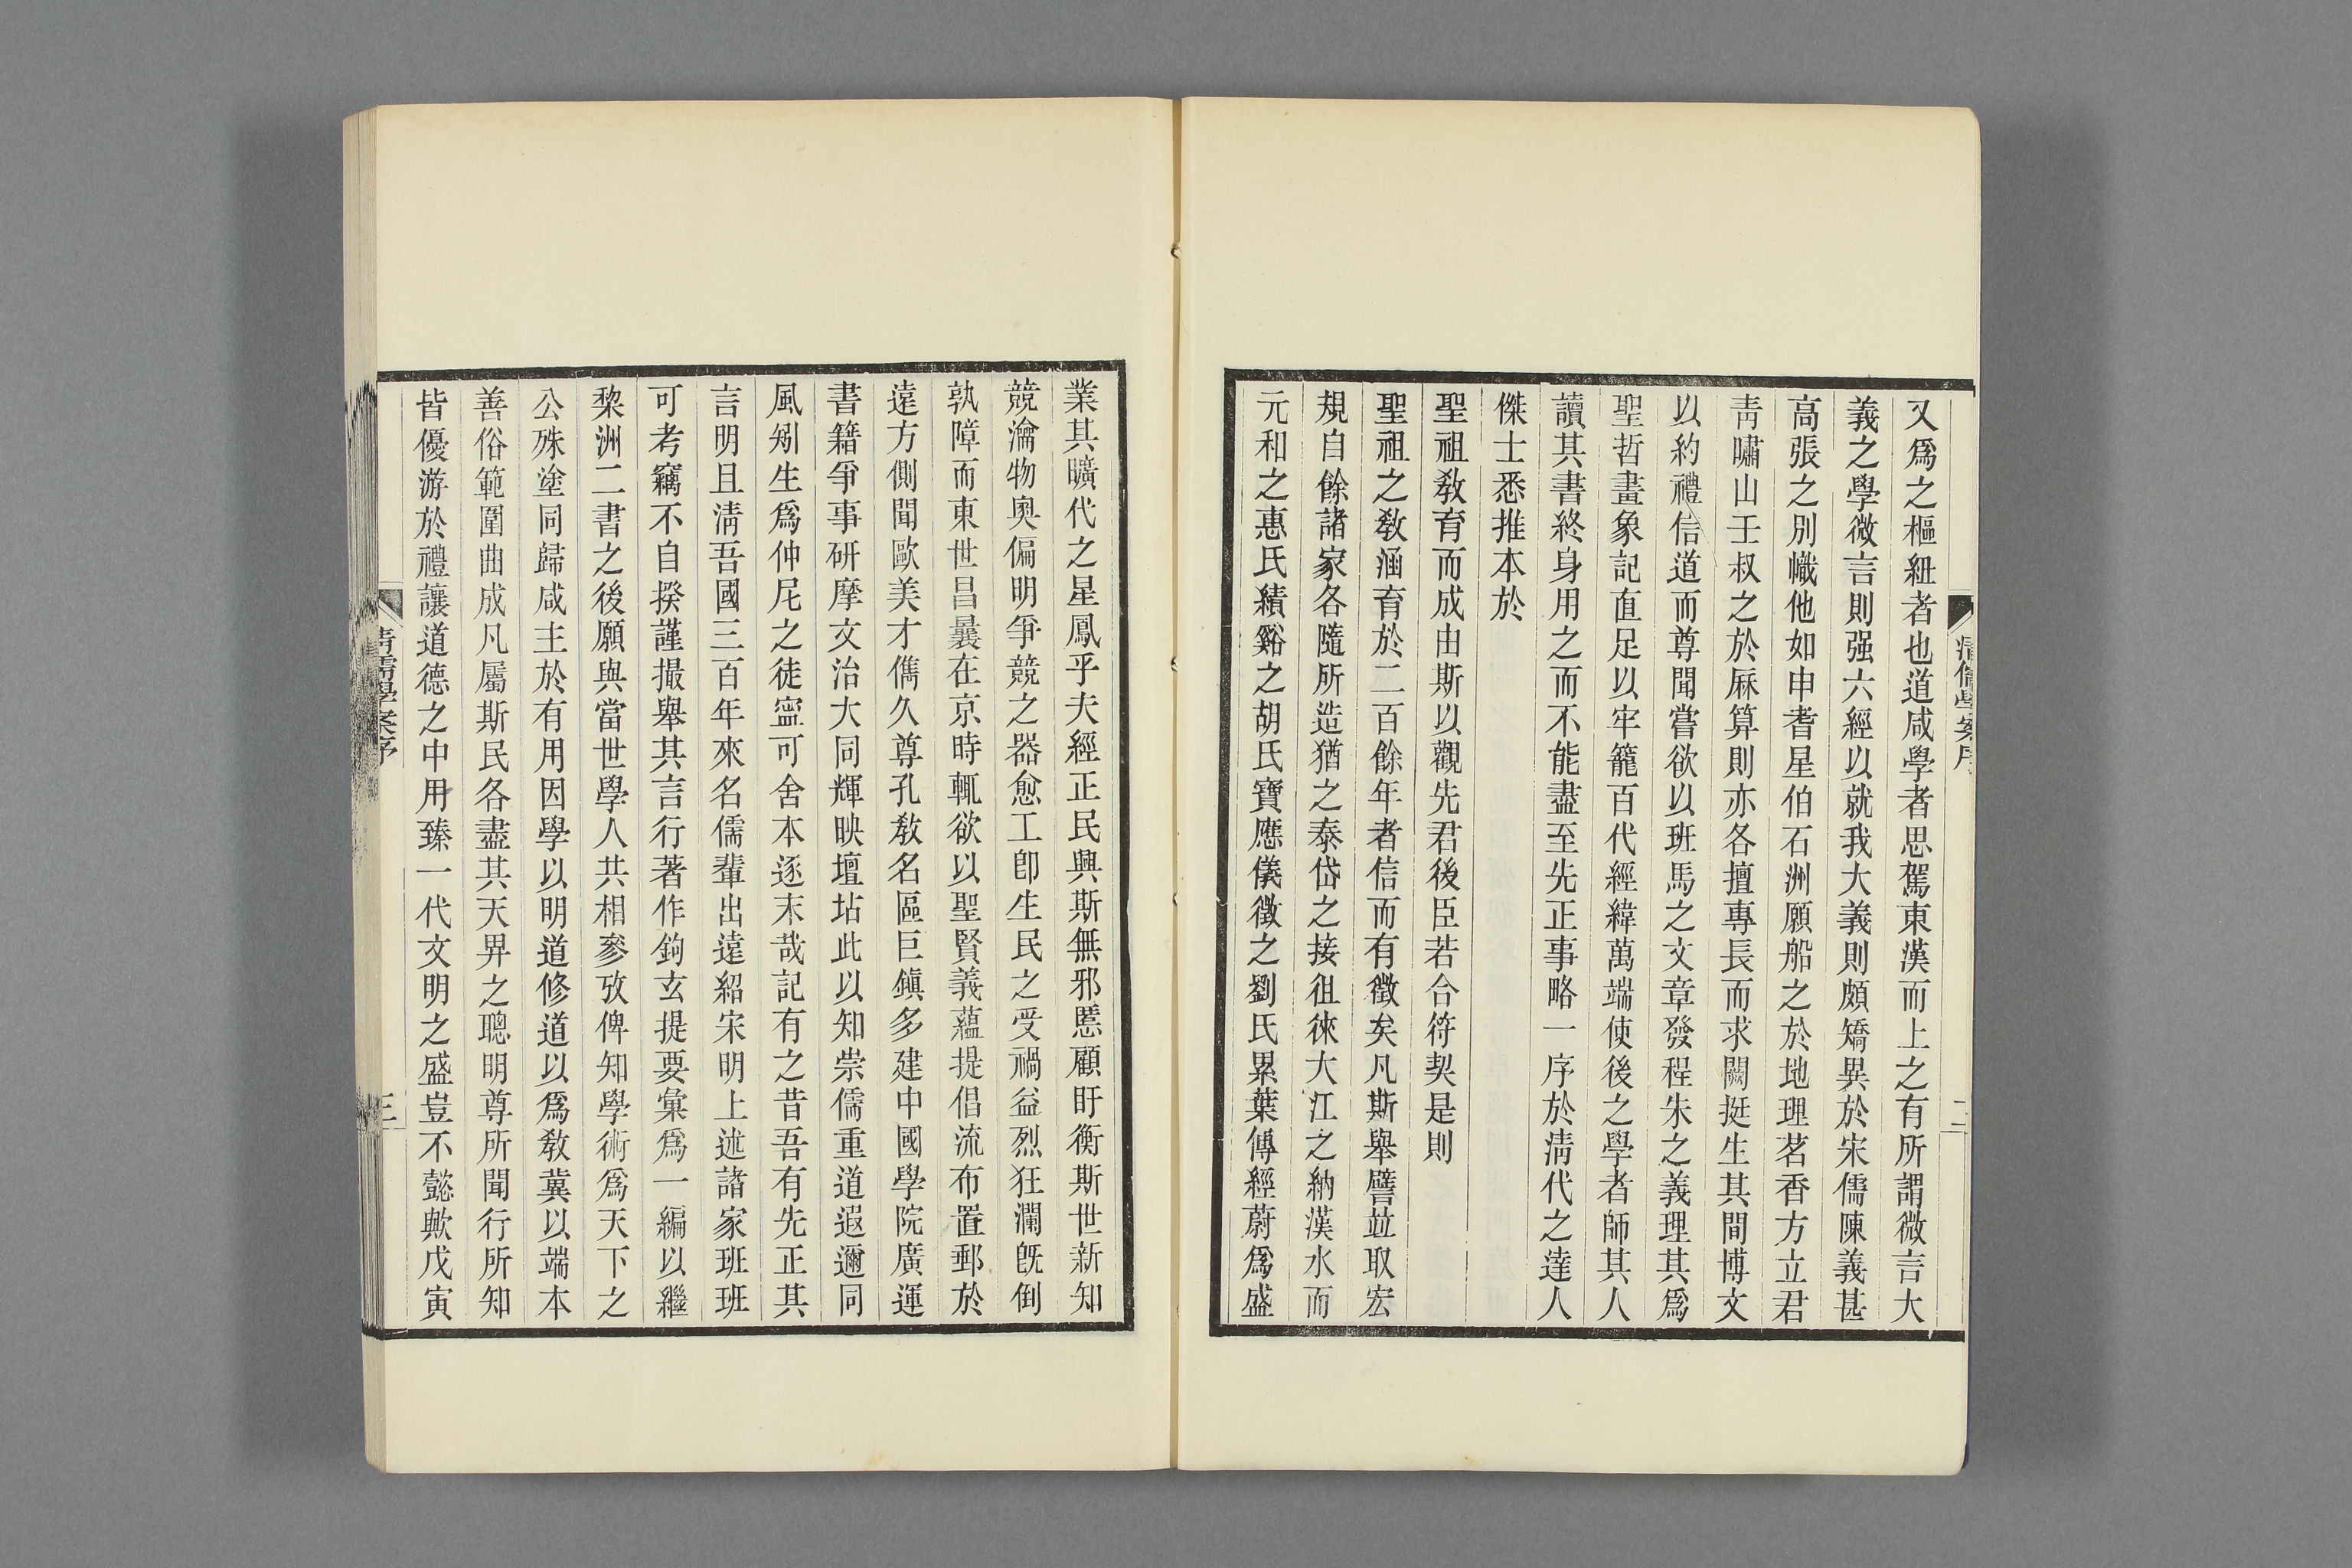 清儒學案序
二
又爲之樞紐者也道咸學者思駕東漢而上之有所謂微言大
義之學微言則强六經以就我大義則頗矯異於宋儒陳義甚
高張之別幟他如申耆星伯石洲願船之於地理茗香方立君
靑嘯山壬叔之於厤算則亦各擅專長而求闕挺生其間博文
以約禮信道而尊聞嘗欲以班馬之文章發程朱之義理其爲
聖哲畫象記直足以牢籠百代經緯萬端使後之學者師其人
讀其書終身用之而不能盡至先正事略一序於淸代之達人
傑士悉推本於
聖祖敎育而成由斯以觀先君後臣若合符契是則
聖祖之敎涵育於二百餘年者信而有徵矣凡斯舉譬竝取宏
規自餘諸家各隨所造猶之泰岱之接徂徠大江之納漢水而
元和之惠氏績谿之胡氏寶應儀徵之劉氏累葉傳經蔚爲盛
業其曠代之星鳳乎夫經正民興斯無邪慝顧盱衡斯世新知
競瀹物奧偏明爭競之器愈工卽生民之受禍益烈狂瀾旣倒
孰障而東世昌曩在京時輒欲以聖賢義蘊提倡流布置郵於
遠方側聞歐美才儁久尊孔敎名區巨鎭多建中國學院廣運
書籍爭事研摩文治大同輝映壇坫此以知崇儒重道遐邇同
風矧生爲仲尼之徒寍可舍本逐末哉記有之昔吾有先正其
言明且淸吾國三百年來名儒輩出遠紹宋明上述諸家班班
可考竊不自揆謹撮舉其言行著作鉤玄提要彙爲一編以繼
棃洲二書之後願與當世學人共相參攷俾知學術爲天下之
公殊塗同歸咸主於有用因學以明道修道以爲敎冀以端本
善俗範圍曲成凡屬斯民各盡其天畀之聰明尊所聞行所知
皆優游於禮讓道德之中用臻一代文明之盛豈不懿歟戊寅
清儒學案序
三